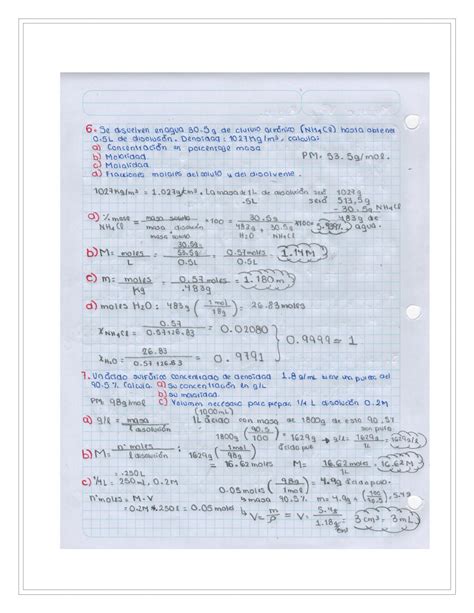 6. Se disuelven en agua 30.5g de cloruro amónico (NH4Cl) hasta obtener
0.5L de disolusión. Densidad: 1027Kg/m³, calcula:
a) Concentración en porcentaje masa
b) Molaridad
c) Molalidad
PM: 53.5g/mol.
d) Fracciones molares del soluto y del disolvente.
1027Kg/m³ = 1.027g/cm³. La masa de 1L de disolución será 1027g
.5L será 513,5g
- 30.5g NH4Cl
483g de agua.
a) % mase NH4Cl = masa soluto / masa disolución × 100 = 30.5g / 483g H2O + 30.5g NH4Cl × 100 =
b) M = moles / L = 30.5g / 53.5g / 0.5L = 0.57moles / 0.5L = 1.14M
c) m = moles / Kg = 0.57 moles / .483g = 1.180m
d) moles H2O: 483g (1mol / 18g) = 26.83moles
XNH4Cl = 0.57 / 0.57+26.83 = 0.02080
0.9999 ≈ 1
XH2O = 26.83 / 0.57+26.83 = 0.9791
7. Un ácido sulfúrico concentrado de densidad 1.8g/mL tiene una pureza del
90.5% Calcula. a) su concentración en g/L
b) su molaridad.
PM: 98g/mol c) Volumen necesario para prepar. 1/4 L disolución 0.2M
(1000mL)
a) g/L = masa / L disolución 1L ácido con masa de 1800g de esto 90.5%
son puro.
1800g (90.5 / 100) = 1629g g/L = 1629g / 1L = 1629g/L
b) M = n° moles / L disolución : 1629g (1mol / 98g) = 16.62 moles M = 16.62moles / 1L = 16.62M
.250L
c) 1/4L = 250mL, 0.2M
0.05moles (98g / 1mol) = 4.9g ácido puro.
n°moles = M·V
masa 90.5% m = 4.9g (100 / 90.5) = 5.4g
= 0.2M × .250L = 0.05moles
V = m / ρ V = 5.4g / 1.18g/cm³ = 3cm³ = 3mL